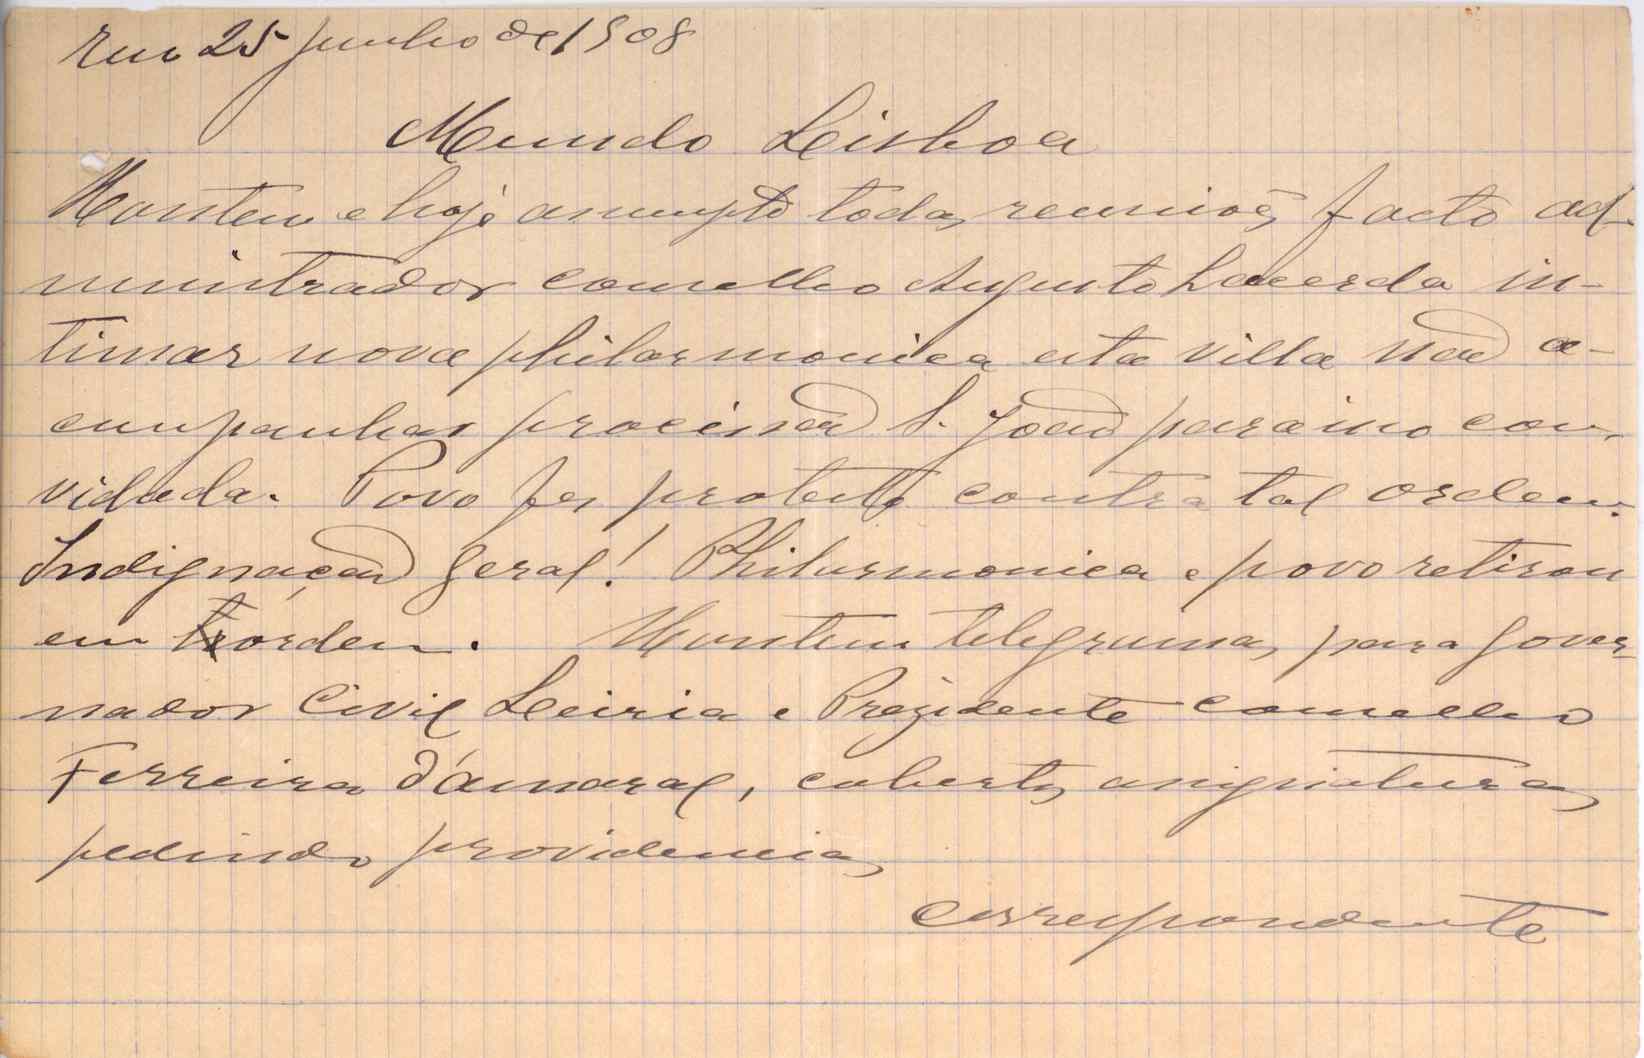 Em 25 junho de 1908
Mundo Lisboa
Hontem e hoje assumpto todas reuniões facto ad-
ministrador concelho Augusto Lacerda in-
timar nova philarmonica esta villa não a-
cumpanhar procissão S. João para isso con-
vidada. Povo fez protesto contra tal ordem.
Indignação geral! Philarmonica e povo retirou
em ordem. Hontem telegramas para gover-
nador Civil Leiria e Prezidente concelho
Ferreira d'Amaral, cubertos assignaturas
pedindo providencias
Correspondente